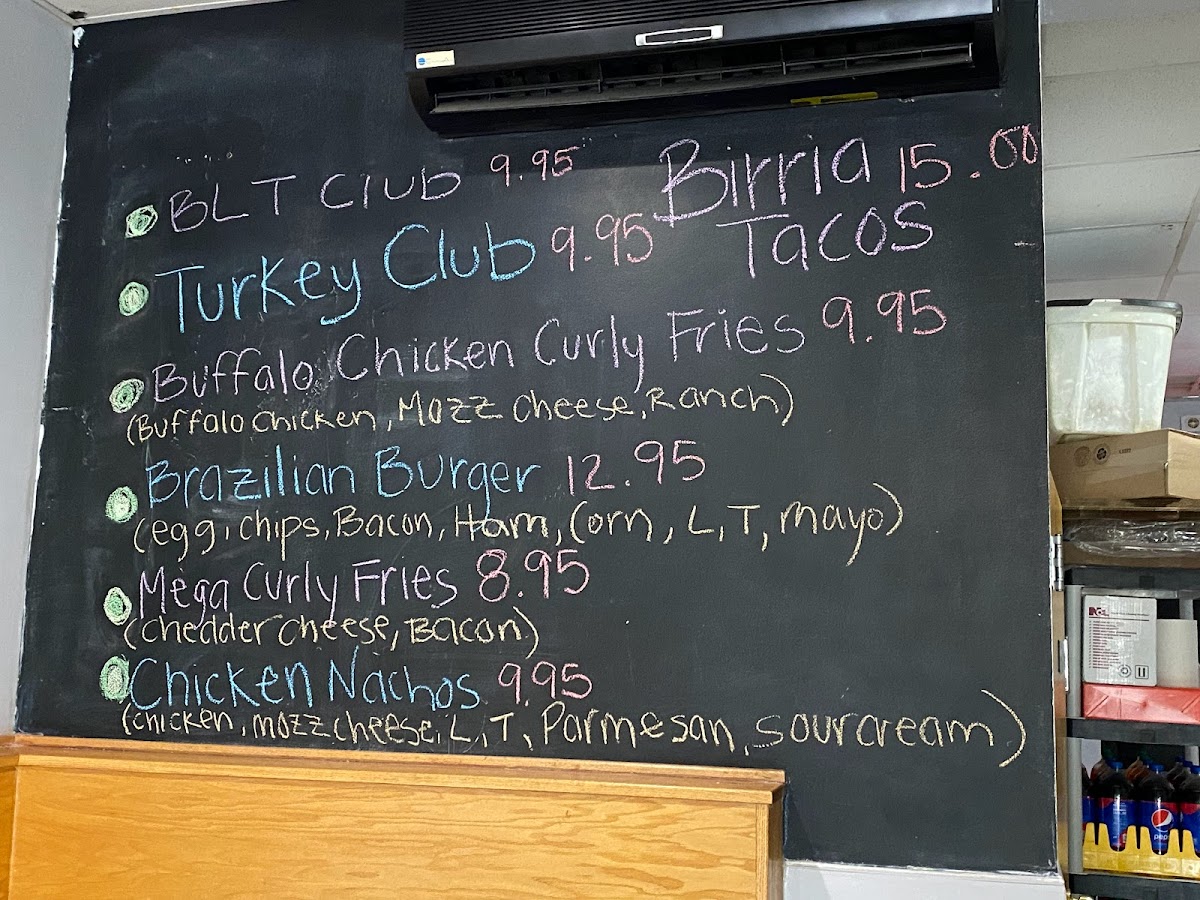 BLT Club 9.95
Birria 15.00
Tacos
Turkey Club 9.95
Buffalo Chicken Curly Fries 9.95
(Buffalo Chicken, Mozz Cheese, Ranch)
Brazilian Burger 12.95
(egg, chips, Bacon, Ham, Corn, L, T, mayo)
Mega Curly Fries 8.95
(Chedder Cheese, Bacon)
Chicken Nachos 9.95
(chicken, mozz cheese, L, T, Parmesan, sour cream)
pepsi